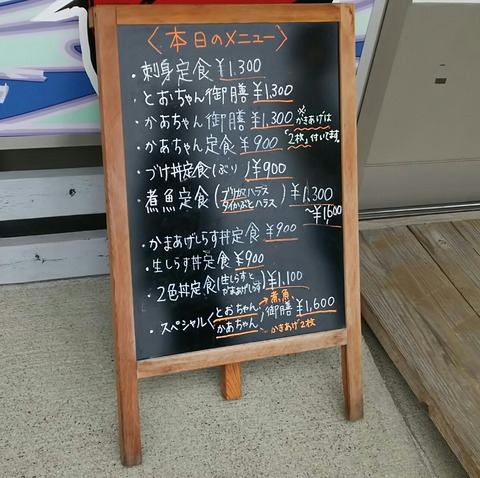 〈本日のメニュー〉
・刺身定食 ¥1,300
・とおちゃん御膳 ¥1,300
・かあちゃん御膳 ¥1,300 ※かきあげは
・かあちゃん定食 ¥900 「2枚」付いてます。
・づけ丼定食(ぶり)¥900
・煮魚定食(ハラス
タイかぶとハラス)¥1,300
〜¥1,600
・かまあげしらす丼定食 ¥900
・生しらす丼定食 ¥900
・2色丼定食(生しらすと
かまあげしらす)¥1,100
・スペシャル〈とおちゃん→煮魚
かあちゃん〉御膳 ¥1,600
かきあげ2枚